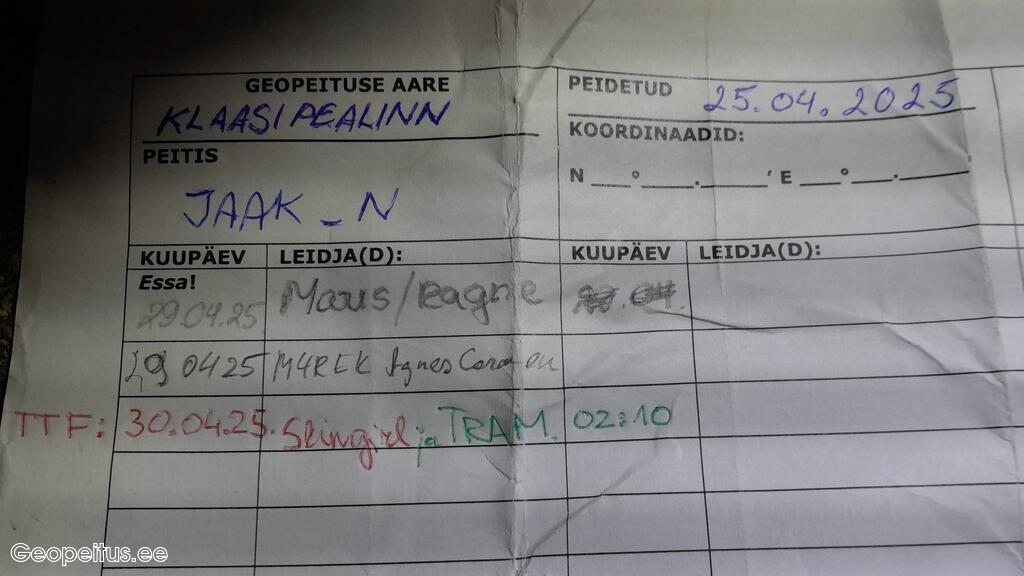 GEOPEITUSE AARE
KLAASIPEALINN
PEIDETUD 25.04.2025
KOORDINAADID:
PEITIS
N ___°____.______' E ___°___.______
JAAK_N
KUUPÄEV LEIDJA(D): KUUPÄEV LEIDJA(D):
Essa!
29.04.25
29 04 25 M4REK Agnes
TTF: 30.04.25. ja TRAM. 02:10
Geopeitus.ee